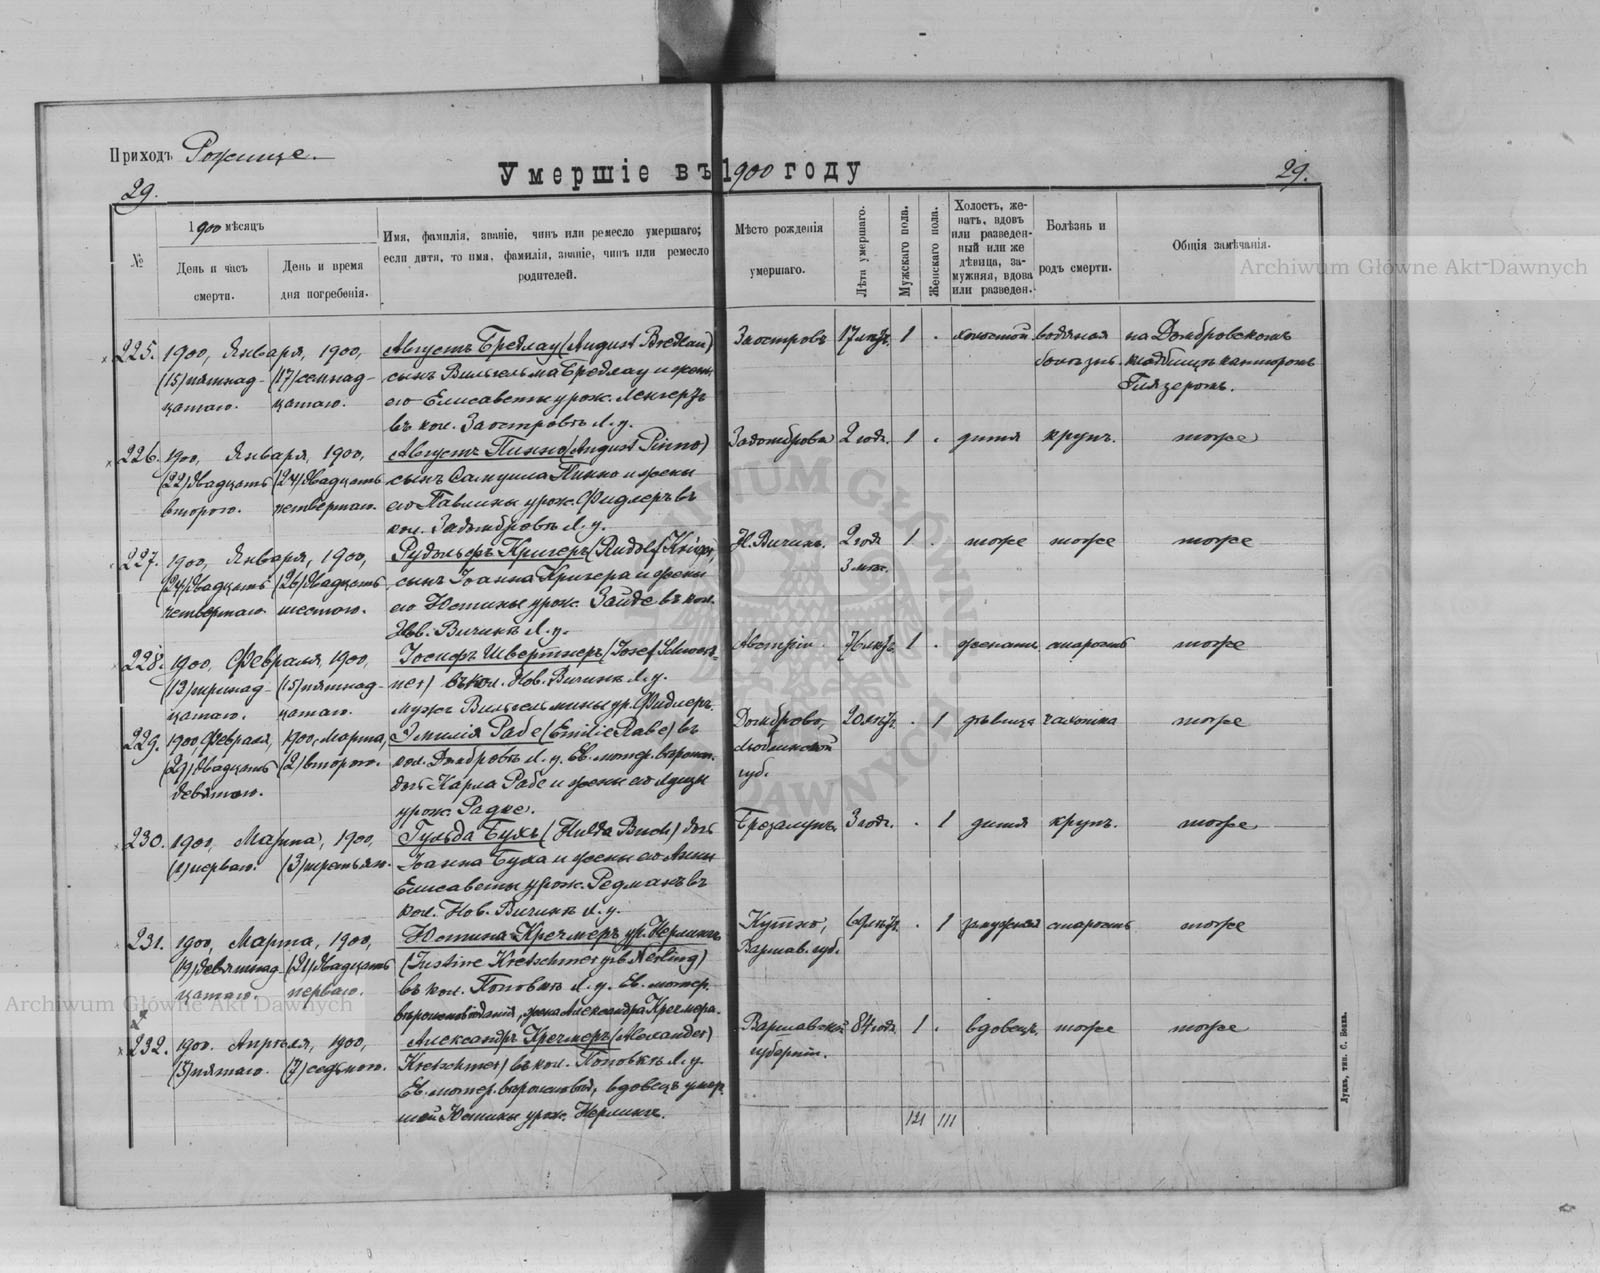 Приходъ Рожище.
Умершіе въ 1900 году
29.
29.
№
1900 мѣсяцъ
День и часъ
смерти.
День и время
дня погребенія.
Имя, фамилія, званіе, чинъ или ремесло умершаго;
если дитя, то имя, фамилія, званіе, чинъ или ремесло
родителей.
Мѣсто рожденія
умершаго.
Лѣта умершаго.
Мужскаго пола.
Женскаго пола.
Холостъ, же-
натъ, вдовъ
или разведен-
ный или же
дѣвица, за-
мужняя, вдова
или разведен.
Болѣзнь и
родъ смерти.
Общія замѣчанія.
225.
1900, Января, 1900,
(15) пятнад- (17) семнад-
цатаго. цатаго.
Августъ Бредлау (August Bredlau)
сынъ Вильгельма Бредлау и жены
его Елисаветы урож. Ленгертъ
въ кол. Заостровъ Л. у.
Заостровъ
17 лѣтъ.
1
.
холостой
водяная
болѣзнь.
на Домбровскомъ
кладбищѣ канторомъ
Глязеромъ.
226.
1900, Января, 1900,
(22) двадцать (24) двадцать
второго. четвертаго.
Августъ Пинно (August Pinno)
сынъ Самуила Пинно и жены
его Павлины урож. Фидлеръ въ
кол. Задомбровъ Л. у.
Задомброва
2 года.
1
.
дитя
крупъ.
тоже
227.
1900, Января, 1900,
(24) двадцать (26) двадцать
четвертаго шестого.
Рудольфъ Кригеръ (Rudolf Krüger)
сынъ Іоанна Кригера и жены
его Юстины урож. Зайде въ кол.
Нов. Вичинѣ Л. у.
Н. Вичинъ.
2 года
3 мѣс.
1
.
тоже
тоже
тоже
228.
1900, Февраля, 1900,
(13) тринад- (15) пятнад-
цатаго. цатаго.
Іосифъ Швертнеръ (Josef Schwert-
ner) въ кол. Нов. Вичинѣ Л. у.
мужъ Вильгельмины ур. Фидлеръ.
Австріи.
76 лѣтъ
1
.
женатъ
старость
тоже
229.
1900, Февраля, 1900, Марта,
(29) двадцать (2) второго.
девятаго.
Эмилія Рабе (Emilie Rabe) въ
кол. Домбровѣ Л. у. Ев. лютер. вѣроисп.
дочь Карла Рабе и жены его Луизы
урож. Радке.
Домброво,
Люблинской
губ.
20 лѣтъ.
.
1
дѣвица
чахотка
тоже
230.
1900, Марта, 1900,
(1) перваго. (3) третьяго.
Гульда Бухъ (Hulda Buch) дочь
Іоанна Буха и жены его Анны
Елисаветы урож. Редманъ въ
кол. Нов. Вичинѣ Л. у.
3 года.
.
1
дитя
крупъ.
тоже
231.
1900, Марта, 1900,
(19) девятнад- (21) двадцать
цатаго. перваго.
Юстина Кречмеръ ур. Нерлингъ
(Justine Kretschmer geb. Nerling)
въ кол. Поповкѣ Л. у. Ев. лютер.
вѣроисповѣданія, жена Александра Кречмера.
Кутно,
Варшав. губ.
69 лѣтъ.
.
1
замужняя
старость
тоже
232.
1900. Апрѣля, 1900,
(5) пятаго. (7) седьмого.
Александръ Кречмеръ (Alexander
Kretschmer) въ кол. Поповкѣ Л. у.
Ев. лютер. вѣроисповѣд., вдовецъ умер-
шей Юстины урож. Нерлингъ.
Варшавской
губерніи.
84 года
1
.
вдовецъ
тоже
тоже
121
111
Луцкъ, тип. С. Іоиха.
Archiwum Główne Akt Dawnych
Archiwum Główne Akt Dawnych
ARCHIWUM GŁÓWNE AKT DAWNYCH